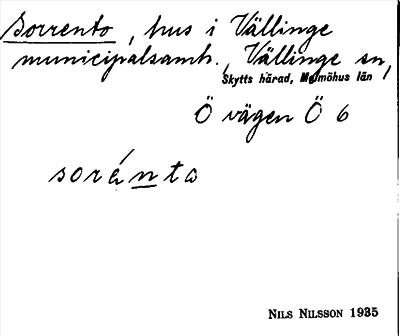 Sorrento, hus i Vällinge
municipalsamh., Vällinge sn,
Skytts härad, Malmöhus län
Ö vägen Ö 6
sorénta
NILS NILSSON 1935